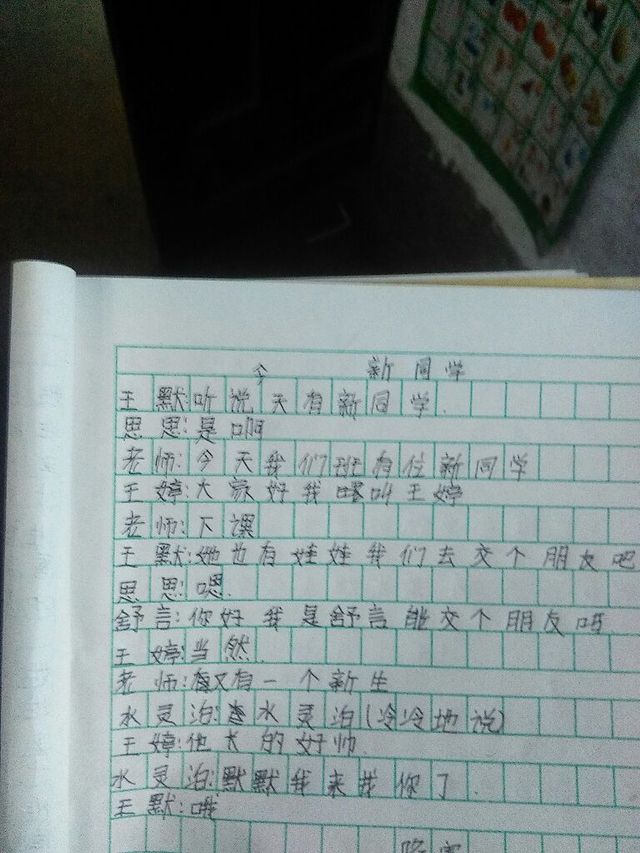 新同学
王默:听说今天有新同学.
思思:是啊
老师:今天我们班有位新同学
王婷:大家好我叫王婷
老师:下课
王默:她也有娃娃我们去交个朋友吧
思思:嗯.
舒言:你好我是舒言能交个朋友吗
王婷:当然.
老师:又有一个新生
水灵泊:水灵泊(冷冷地说)
王婷:他长的好帅.
水灵泊:默默我来找你了.
王默:哦